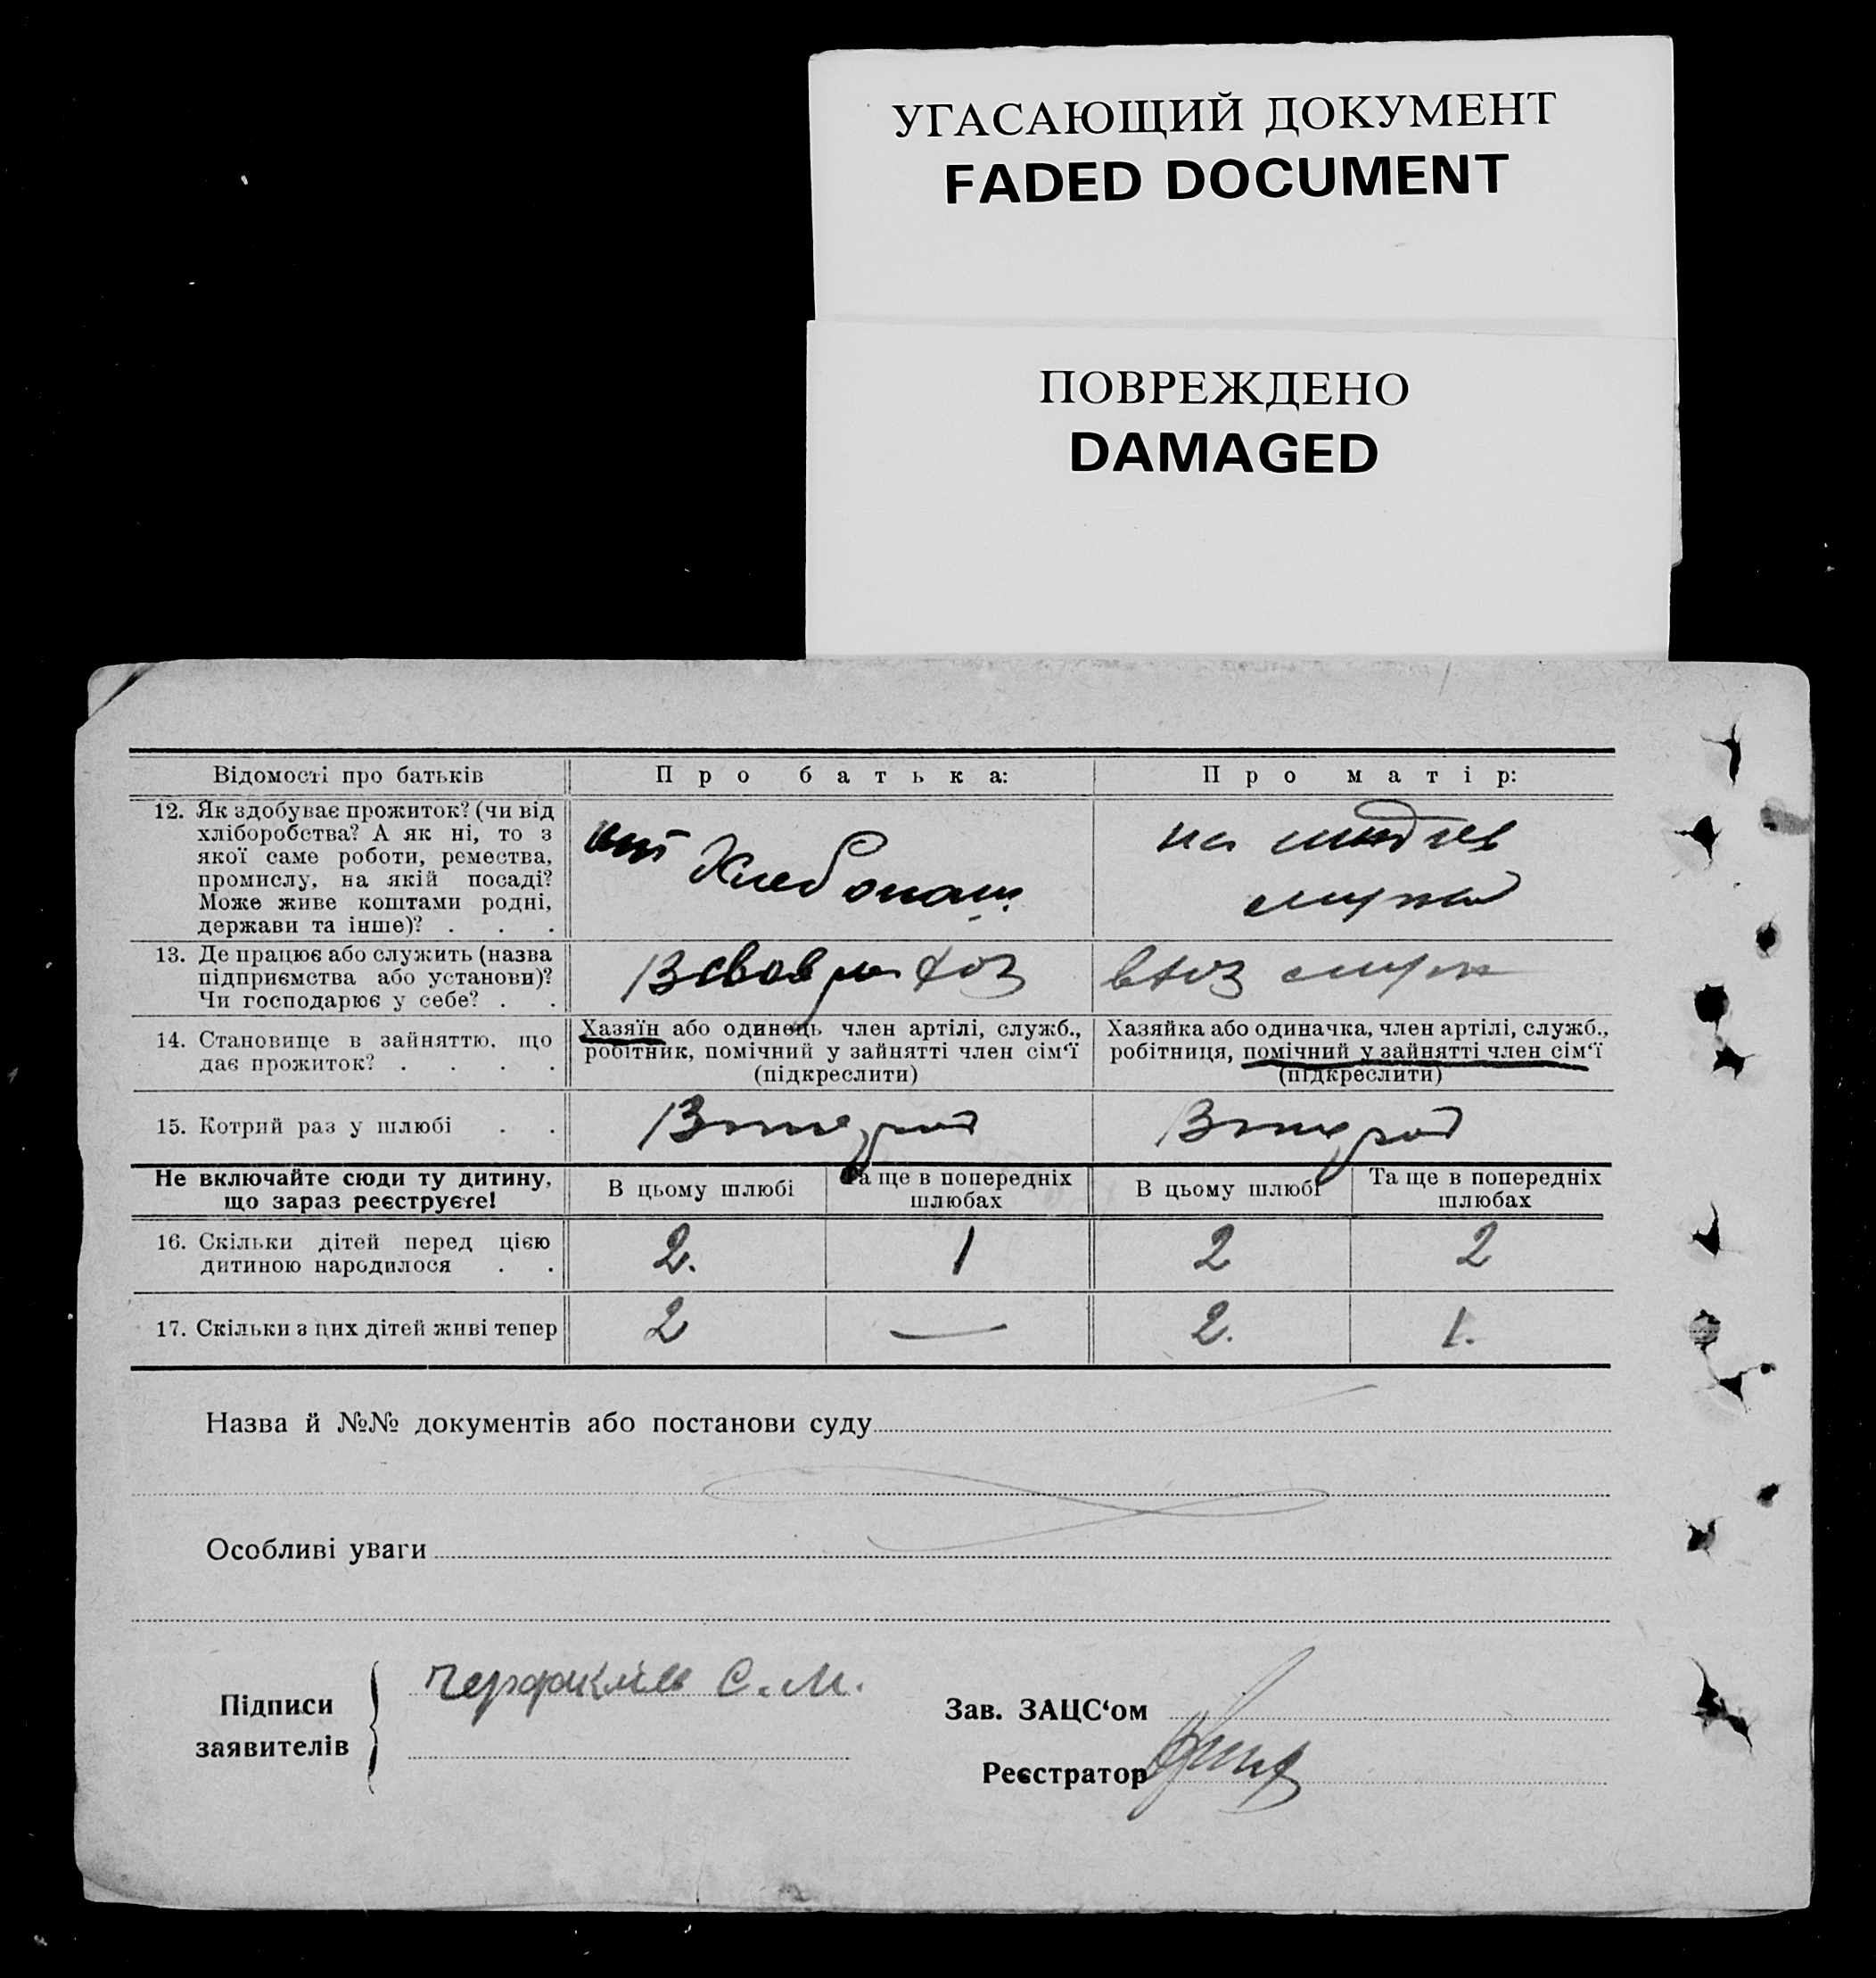 УГАСАЮЩИЙ ДОКУМЕНТ
FADED DOCUMENT
ПОВРЕЖДЕНО
DAMAGED
Відомості про батьків
Про батька:
Про матір:
12. Як здобуває прожиток? (чи від
хліборобства? А як ні, то з
якої саме роботи, ремества,
промислу, на якій посаді?
Може живе коштами родні,
держави та інше)? . . .
от Хлебопаш.
на
мужа
13. Де працює або служить (назва
підприємства або установи)?
Чи господарює у себе? . .
В своем хоз
в хоз мужа
14. Становище в зайняттю, що
дає прожиток? . . . .
Хазяїн або одинець член артілі, служб.,
робітник, помічний у зайнятті член сім‘ї
(підкреслити)
Хазяйка або одиначка, член артілі, служб.,
робітниця, помічний у зайнятті член сім‘ї
(підкреслити)
15. Котрий раз у шлюбі . .
Вторий
Вторий
Не включайте сюди ту дитину,
що зараз реєструєте!
В цьому шлюбі
Та ще в попередніх
шлюбах
В цьому шлюбі
Та ще в попередніх
шлюбах
16. Скільки дітей перед цією
дитиною народилося . .
2. 1 2 2
17. Скільки з цих дітей живі тепер
2 — 2. 1.
Назва й №№ документів або постанови суду
Особливі уваги
Підписи
заявителів
С. М.
Зав. ЗАЦС‘ом
Реєстратор